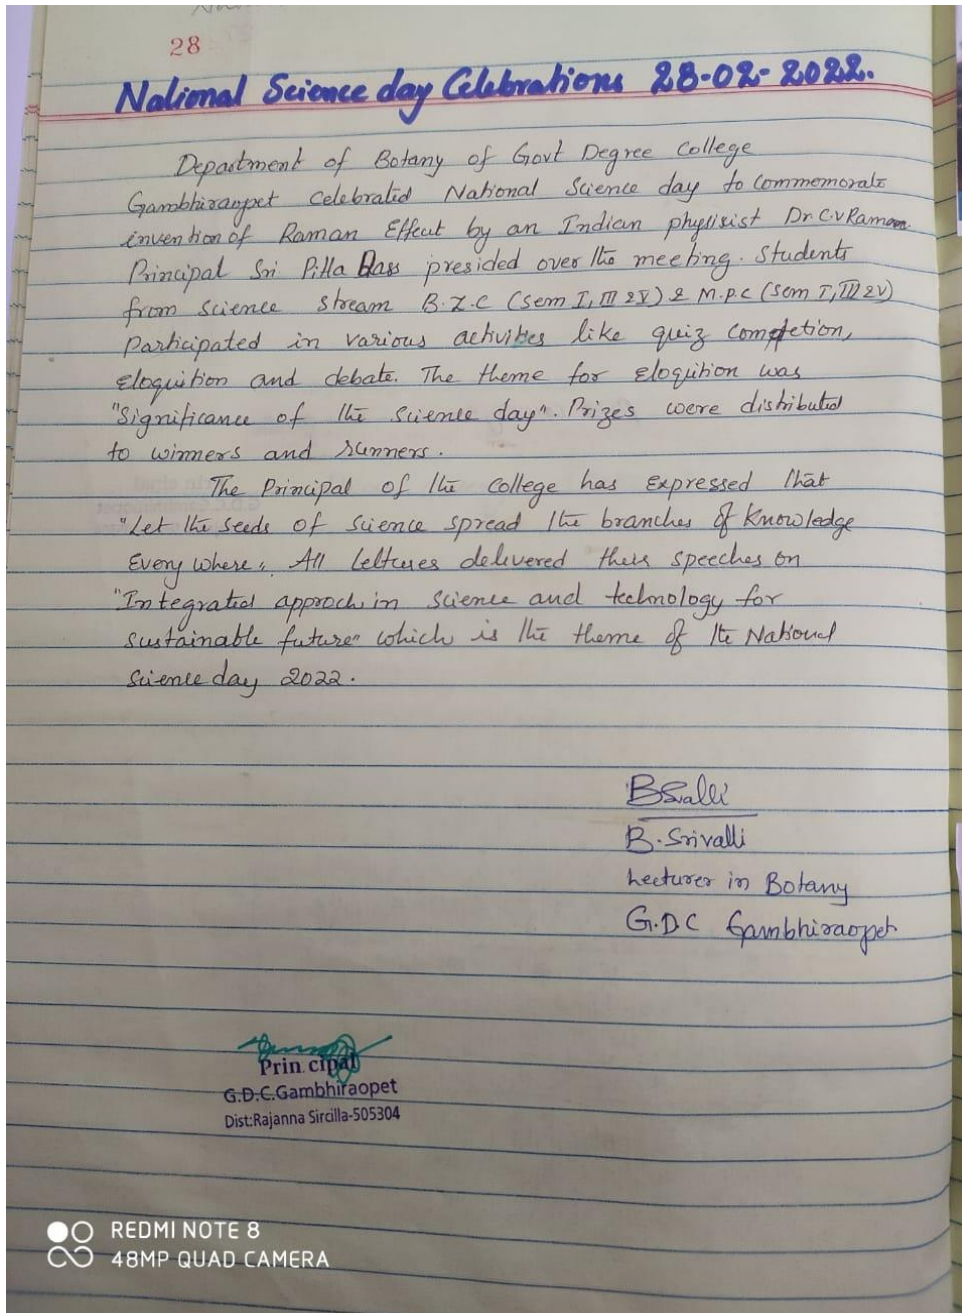 28
National Science day Celebrations 28-02-2022.
Department of Botany of Govt Degree College
Gambhiraopet Celebrated National Science day to commemorate
invention of Raman Effect by an Indian physisist Dr C.V Raman.
Principal Sri Pilla Dass presided over the meeting. Students
from science stream B.Z.C (Sem I, III & V) & M.P.C (Sem I, III & V)
participated in various activities like quiz competetion,
eloqution and debate. The theme for eloqution was
"Significance of the science day". Prizes were distributed
to winners and runners.
The Principal of the College has expressed that
"Let the seeds of science spread the branches of Knowledge
Every where". All lectures delivered their speeches on
"Integrated approch in science and technology for
sustainable future" which is the theme of the National
Science day 2022.
B.Srivalli
Lecturer in Botany
G.D.C Gambhiraopet
Prin.cipal
G.D.C.Gambhiraopet
Dist:Rajanna Sircilla-505304
REDMI NOTE 8
48MP QUAD CAMERA